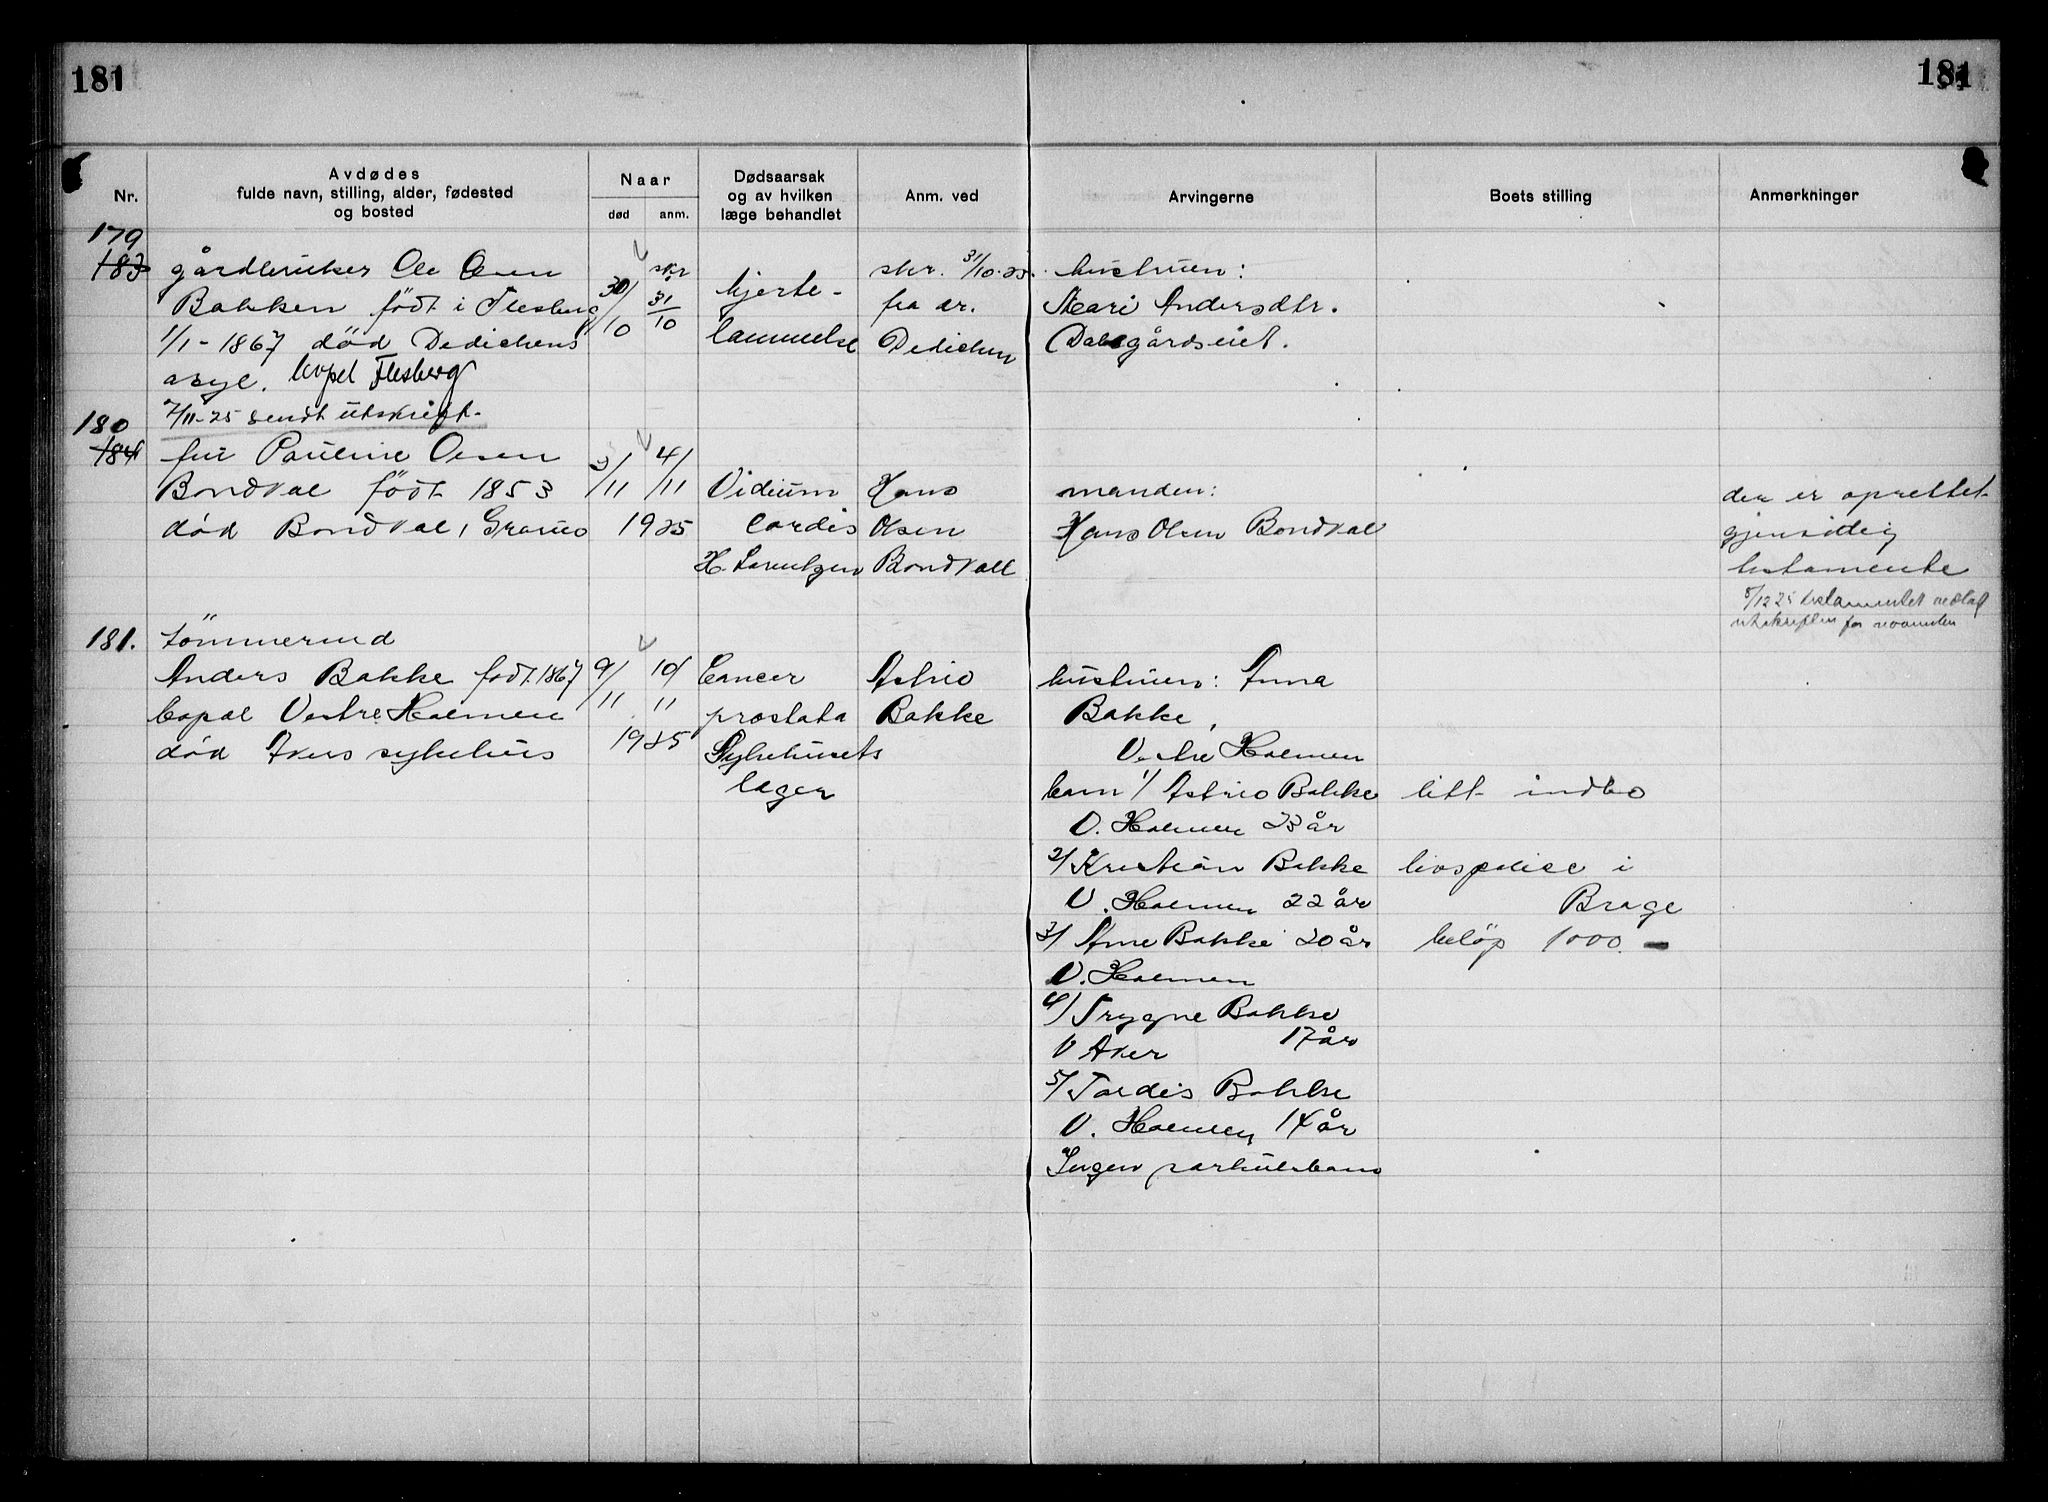 181
181
Nr.
Avdødes
fulde navn, stilling, alder, fødested
og bosted
Naar
død
anm.
Dødsaarsak
og av hvilken
læge behandlet
Anm. ved
Arvingerne
Boets stilling
Anmerkninger
179
183
gårdbruker Ole Olsen
Bakken født i Flesberg
1/1-1867 død Dedichens
asyl. bopel Flesberg
7/11-25 sendt utskrift
30/10
skr 31/10
hjerte-
lammelse
skr. 31/10-25.
fra dr.
Dedichen
hustruen:
Mari Andersdtr.
180
184
fru Pauline Olsen
Bondkal født 1853
død Bondkal, Grorud
3/11 4/11
1925
Vidium
cordis
H. Lorentzen
Hans
Olsen
Bondkall
manden:
Hans Olsen Bondkal
der er oprettet
gjensidig
testamente
5/12 25 testamentet
181.
tömmermd
Anders Bakke født 1867
bopæl Vestre Holmen
død Akers sykehus
9/11 10/11
1925
Cancer
prostata
Sykehusets
læger
Astrid
Bakke
hustruen: Anna
Bakke,
Vestre Holmen
barn 1/ Astrid Bakke
V. Holmen 23 år
2/ Kristian Bakke
V. Holmen 22 år
3/ Arne Bakke 20 år
V. Holmen
4/ Trygve Bakke
V Aker 17 år
5/ Tordis Bakke
V. Holmen 14 år
Ingen særkulsbarn
litt indbo
livspolise i
Brage
beløp 1000.-